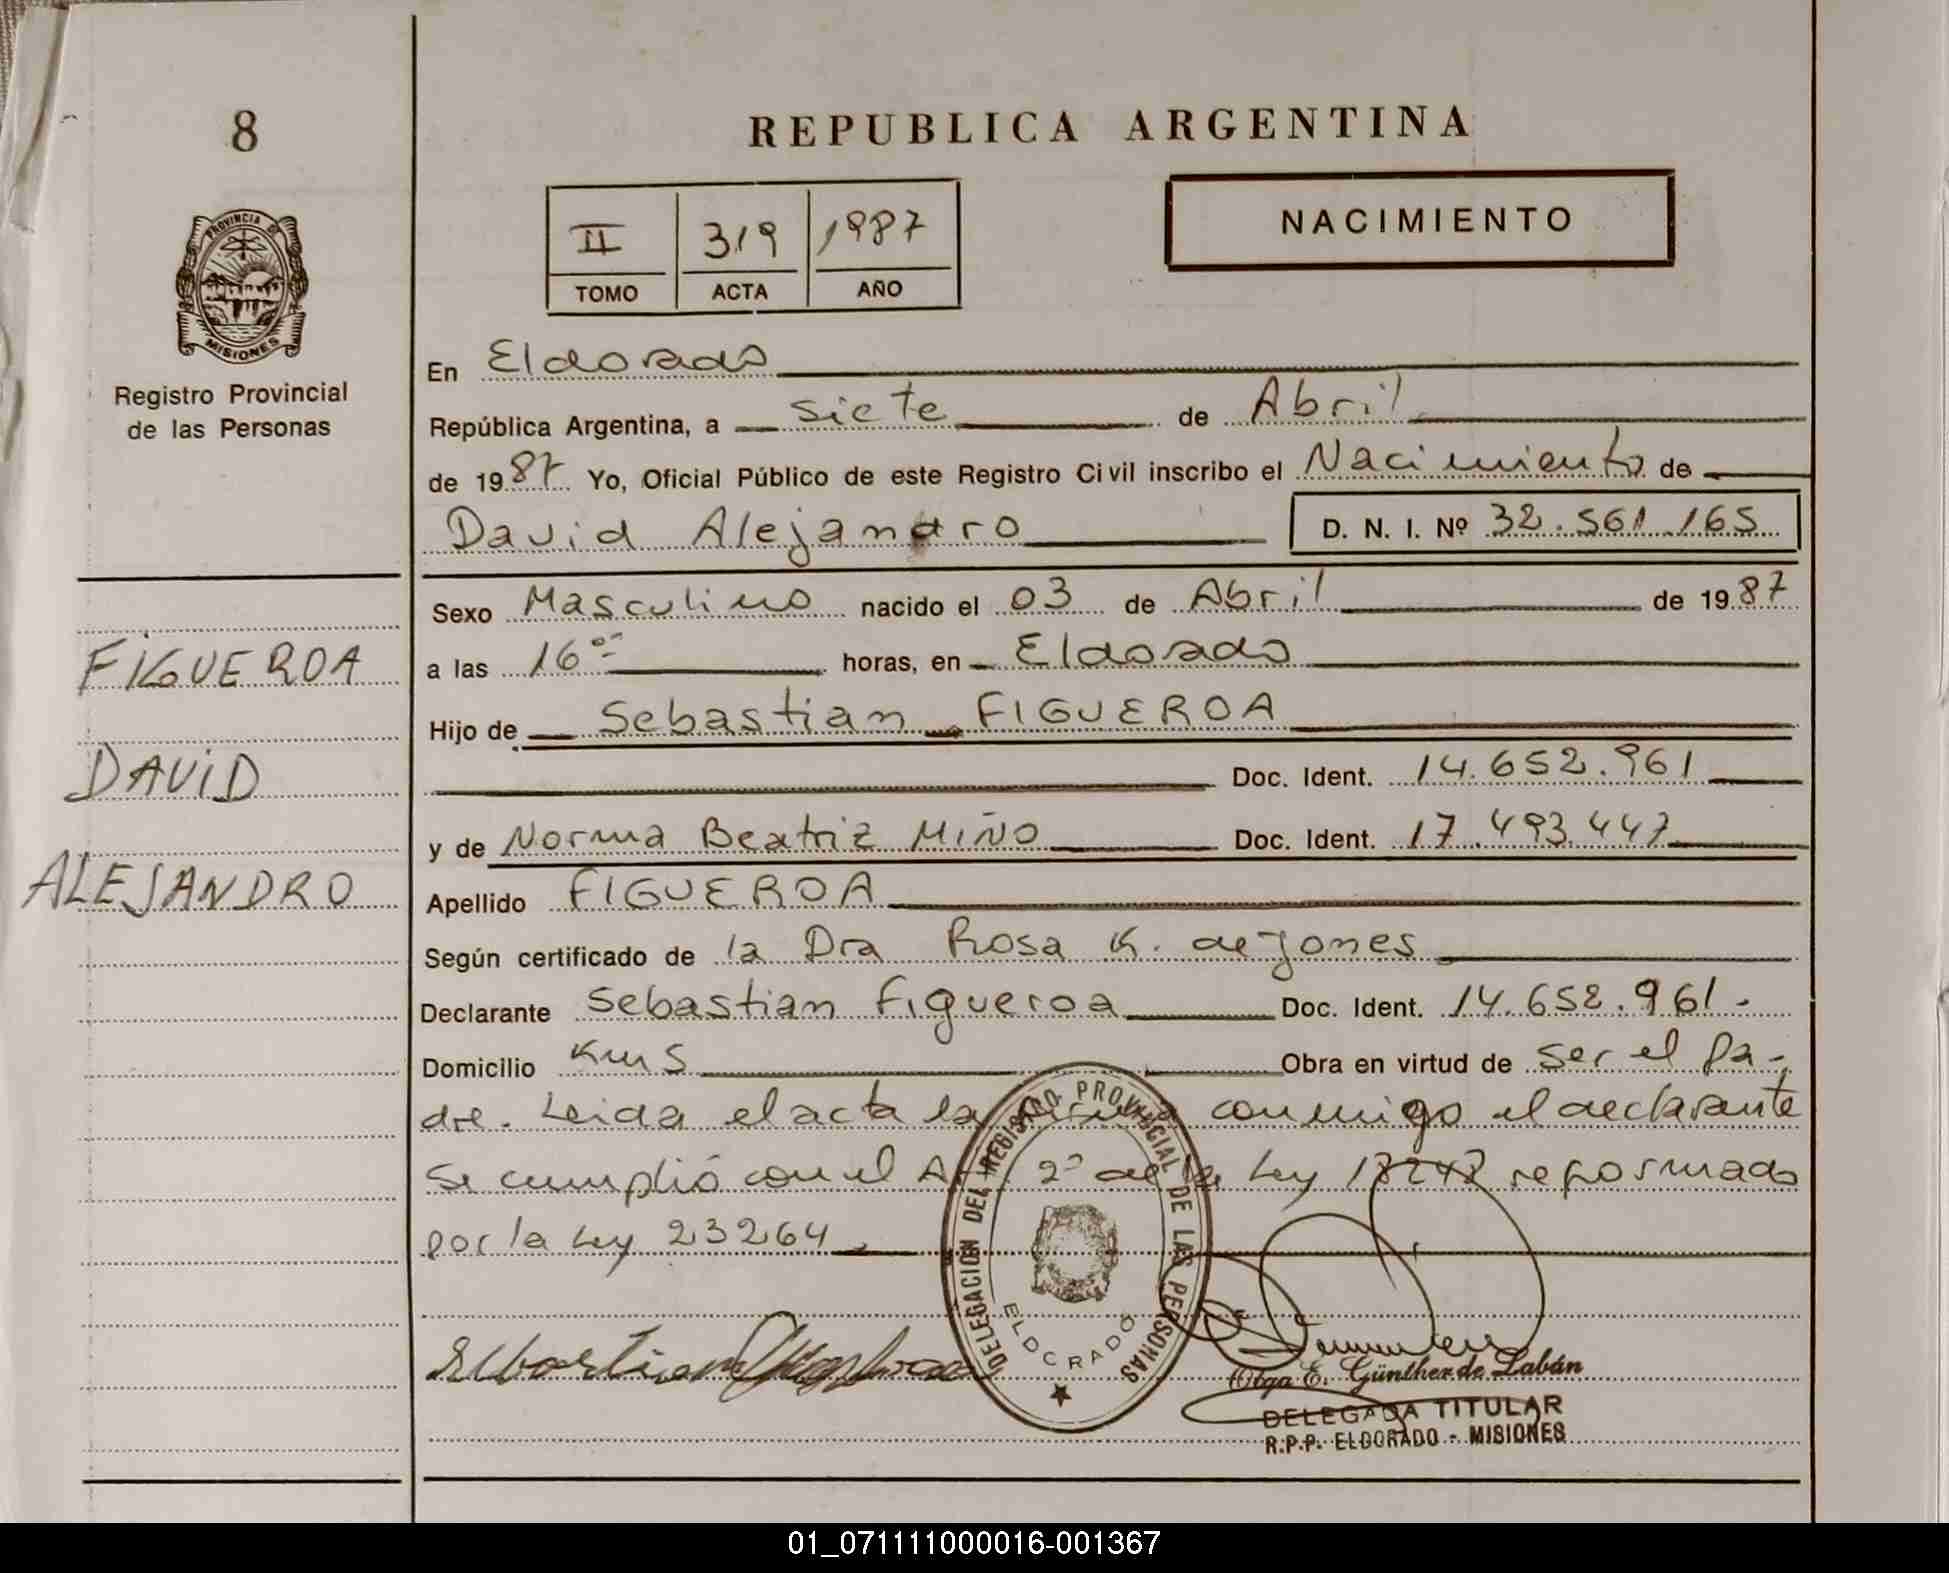 8
REPUBLICA ARGENTINA
NACIMIENTO
II 319 1987
TOMO ACTA AÑO
PROVINCIA DE
MISIONES
Registro Provincial
de las Personas
FIGUEROA
DAVID
ALEJANDRO
En Eldorado
República Argentina, a siete de Abril
de 1987 Yo, Oficial Público de este Registro Civil inscribo el Nacimiento de
David Alejandro D. N. I. Nº 32.561.165
Sexo Masculino nacido el 03 de Abril de 1987
a las 16 horas, en Eldorado
Hijo de Sebastian FIGUEROA
Doc. Ident. 14.652.961
y de Norma Beatriz MIÑO Doc. Ident. 17.493.447
Apellido FIGUEROA
Según certificado de la Dra Rosa K. de Jones
Declarante Sebastian Figueroa Doc. Ident. 14.652.961.-
Domicilio Km 5 Obra en virtud de ser el pa-
dre. Leida el acta la conmigo el declarante
se cumplió con el 2º de la Ley 18248 reformado
por la Ley 23264.
DELEGACION DEL REGISTRO PROVINCIAL DE LAS PERSONAS
ELDORADO
Sebastian Figueroa
Olga E. Günther de Labán
DELEGADA TITULAR
R.P.P. ELDORADO - MISIONES
01_071111000016-001367